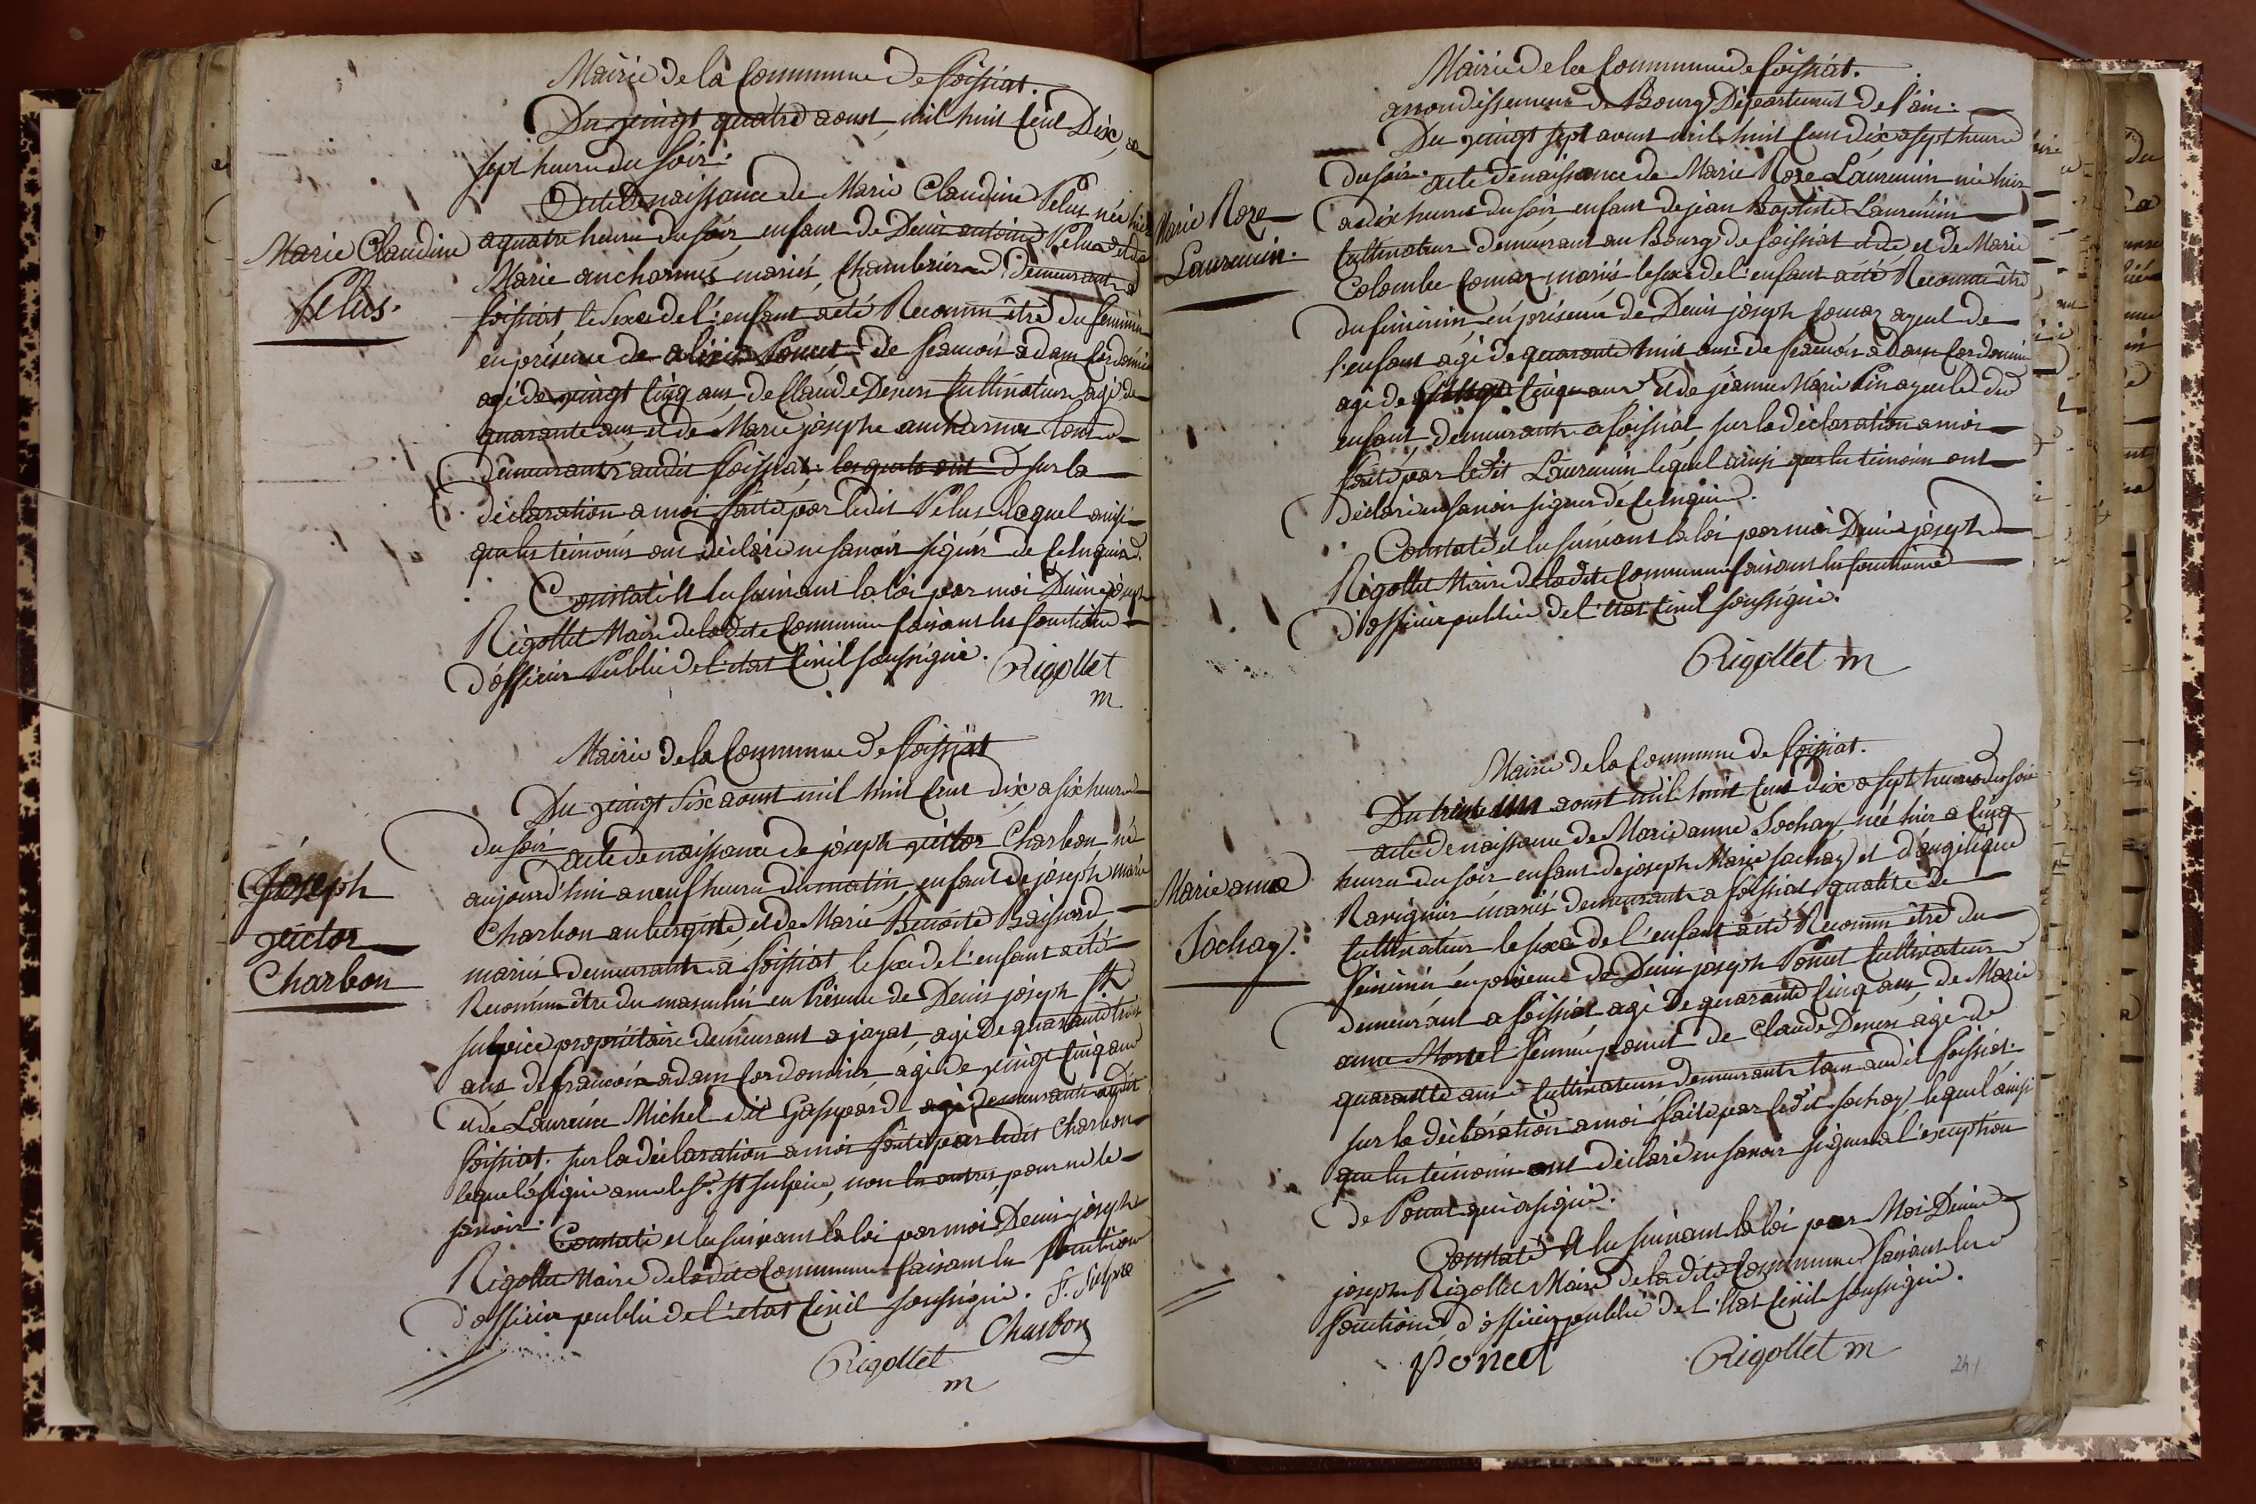 Mairie de la Commune de foissiat.
Du vingt quatre aoust mil huit Cent Dix, a
sept heure du soir.
Acte De naissance de Marie Claudine Pelus née hier
Marie Claudine
Pelus.
a quatre heure du soir, enfant de Denis antoine Pelus et de
Marie ancharmes mariés, Chambrier demeurant a
foissiat, le Sexe de l'enfant a été Reconnu être du feminin
en présence de de francois adam Cordonnier
agé de vingt Cinq ans, de Claude Denes Cultivateur agé de
quarante ans, et de Marie josephe ancharmes tous
demeurants audit foissiat. sur la
déclaration a moi faite par ledit Pelus lequel ainsi
que les temoins ont Déclaré ne savoir signer de Ce Enquis.
Constaté et lu suivant la loi par moi Denis joseph
Rigollet Maire de la dite Commune faisant les fonctions
d'officier Public de l'état Civil soussigné. Rigollet
m
Mairie de la Commune De foissiat
Du vingt Six aoust mil huit Cent dix a six heure
du soir
acte de naissance de joseph victor Charbon né
Joseph
victor
Charbon
aujourd'hui a neuf heure du matin, enfant de joseph marie
Charbon aubergiste et de Marie Benoite
mariés demeurants a foissiat le sexe de l'enfant a été
Reconnu être du masculin en Présence de Denis joseph St
sulpice propriétaire demeurant a jayat, agé De quarante trois
ans de francois adam Cordonnier agé de vingt Cinq ans
et de Laurence Michel dit Gaspard demeurants audit
foissiat. sur la déclaration a moi faite par ledit Charbon
lequel a signé avec le Sr. St sulpice, non les autres pour ne le
savoir.
Constaté et lu suivant la loi par moi Denis joseph
Rigollet Maire de la dite Commune faisant les fonctions
d'officier public de l'état Civil soussigné. St. Sulpice
Charbon
Rigollet
m
Mairie de la Commune de foissiat.
arrondissement de Bourg Département de l'ain.
Du vingt sept aoust mil huit Cent dix a sept heure
du soir.
acte de naissance de Marie Roze Lauremin née hier
Marie Roze
Lauremin.
a dix heures du soir, enfant de jean Baptiste Lauremin
Cultivateur demeurant au Bourg de foissiat et de Marie
Colombe Comaz mariés le sexe de l'enfant a été Reconnu être
du feminin en présence de Denis joseph Comaz ayeul de
l'enfant agé de quarante huit ans. de francois adam Cordonnier
agé de Cinq ans et de jeanne Marie Pin ayeule du
enfant demeurants a foissiat, sur la déclaration a moi
faite par ledit Lauremin lequel ainsi que les temoins ont
Déclaré ne savoir signer de Ce Enquis.
Constaté et lu suivant la loi par moi Denis joseph
Rigollet Maire de la dite Commune faisant les fonctions
d'officier public de l'état Civil soussigné.
Rigollet m
Mairie de la Commune de foissiat.
Du trente un aoust mil huit Cent dix a sept heures du soir
acte de naissance de Marie anne Sochay, née hier a Cinq
Marie anne
Sochay.
heures du soir enfant de joseph Marie Sochay et d'angelique
Ravignier mariés demeurants a foissiat, qualité de
Cultivateur le sexe de l'enfant a été Reconnu être du
féminin en présence de Denis joseph Poncet Cultivateur
demeurant a foissiat agé De quarante Cinq ans, de Marie
anne Morel femme poncet de Claude Denes agé de
quarante ans Cultivateurs demeurants tous audit foissiat.
sur la déclaration a moi faite par ledit Sochay lequel ainsi
que les témoins ont déclaré ne savoir signer a l'exception
de Poncet qui a signé.
Constaté et lu suivant la loi par Moi Denis
joseph Rigollet Maire de la dite Commune faisant les
fonctions d'officier public de l'état Civil soussigné.
Poncet
Rigollet m
241